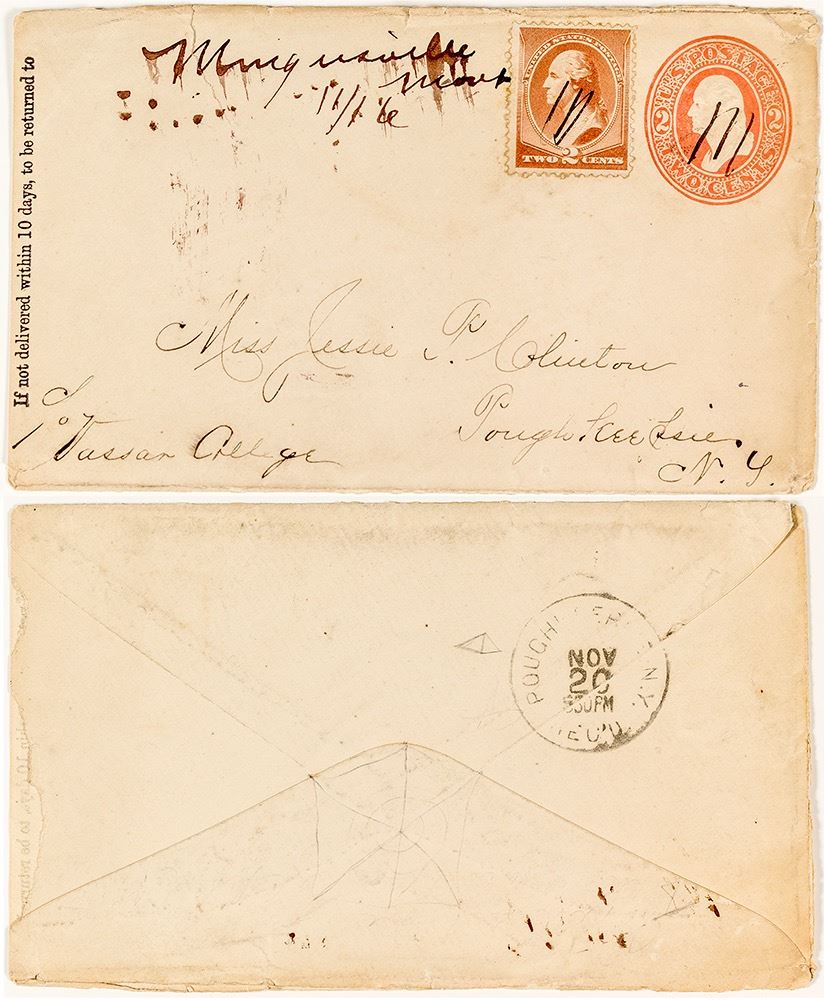 If not delivered within 10 days, to be returned to
Mingusville
Mont
11/16
UNITED STATES POSTAGE
TWO 2 CENTS
U.S. POSTAGE
2 2
TWO CENTS
Miss Jessie P. Clinton
Poughkeepsie.
N. Y.
c/o Vassar College
POUGHKEEPSIE N.Y.
NOV
20
830PM
REC'D.